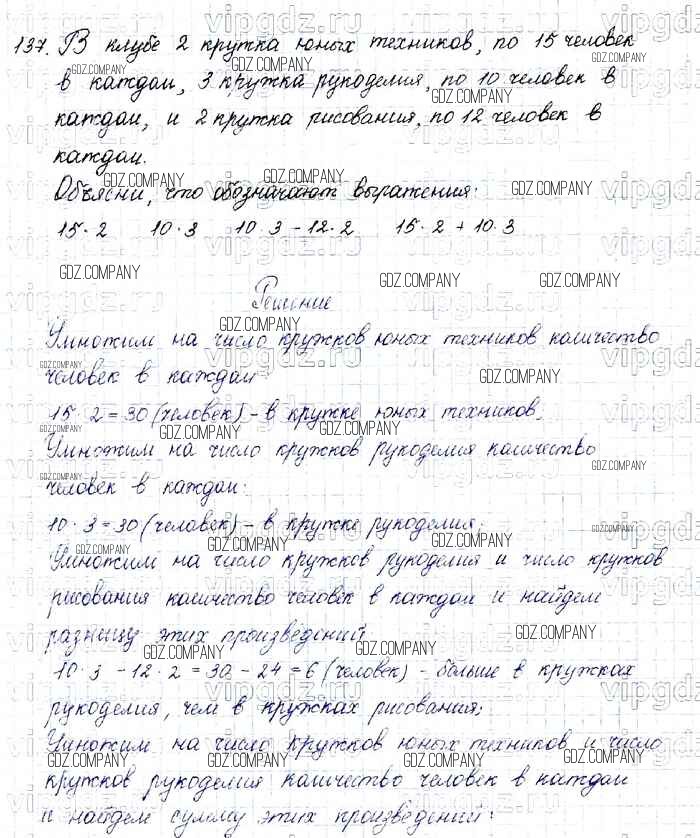 137. В клубе 2 кружка юных техников, по 15 человек
в каждом, 3 кружка рукоделия, по 10 человек в
каждом, и 2 кружка рисования, по 12 человек в
каждом.
Объясни, что обозначают выражения:
15·2 10·3 10·3-12·2 15·2+10·3
Решение
Умножим на число кружков юных техников количество
человек в каждом
15·2=30 (человек) - в кружке юных техников.
Умножим на число кружков рукоделия количество
человек в каждом:
10·3=30 (человек) - в кружке рукоделия;
Умножим на число кружков рукоделия и число кружков
рисования количество человек в каждом и найдем
разницу этих произведений
10·3-12·2=30-24=6 (человек) - больше в кружках
рукоделия, чем в кружках рисования;
Умножим на число кружков юных техников и число
кружков рукоделия количество человек в каждом
и найдем сумму этих произведений:
GDZ.COMPANY
vipgdz.ru